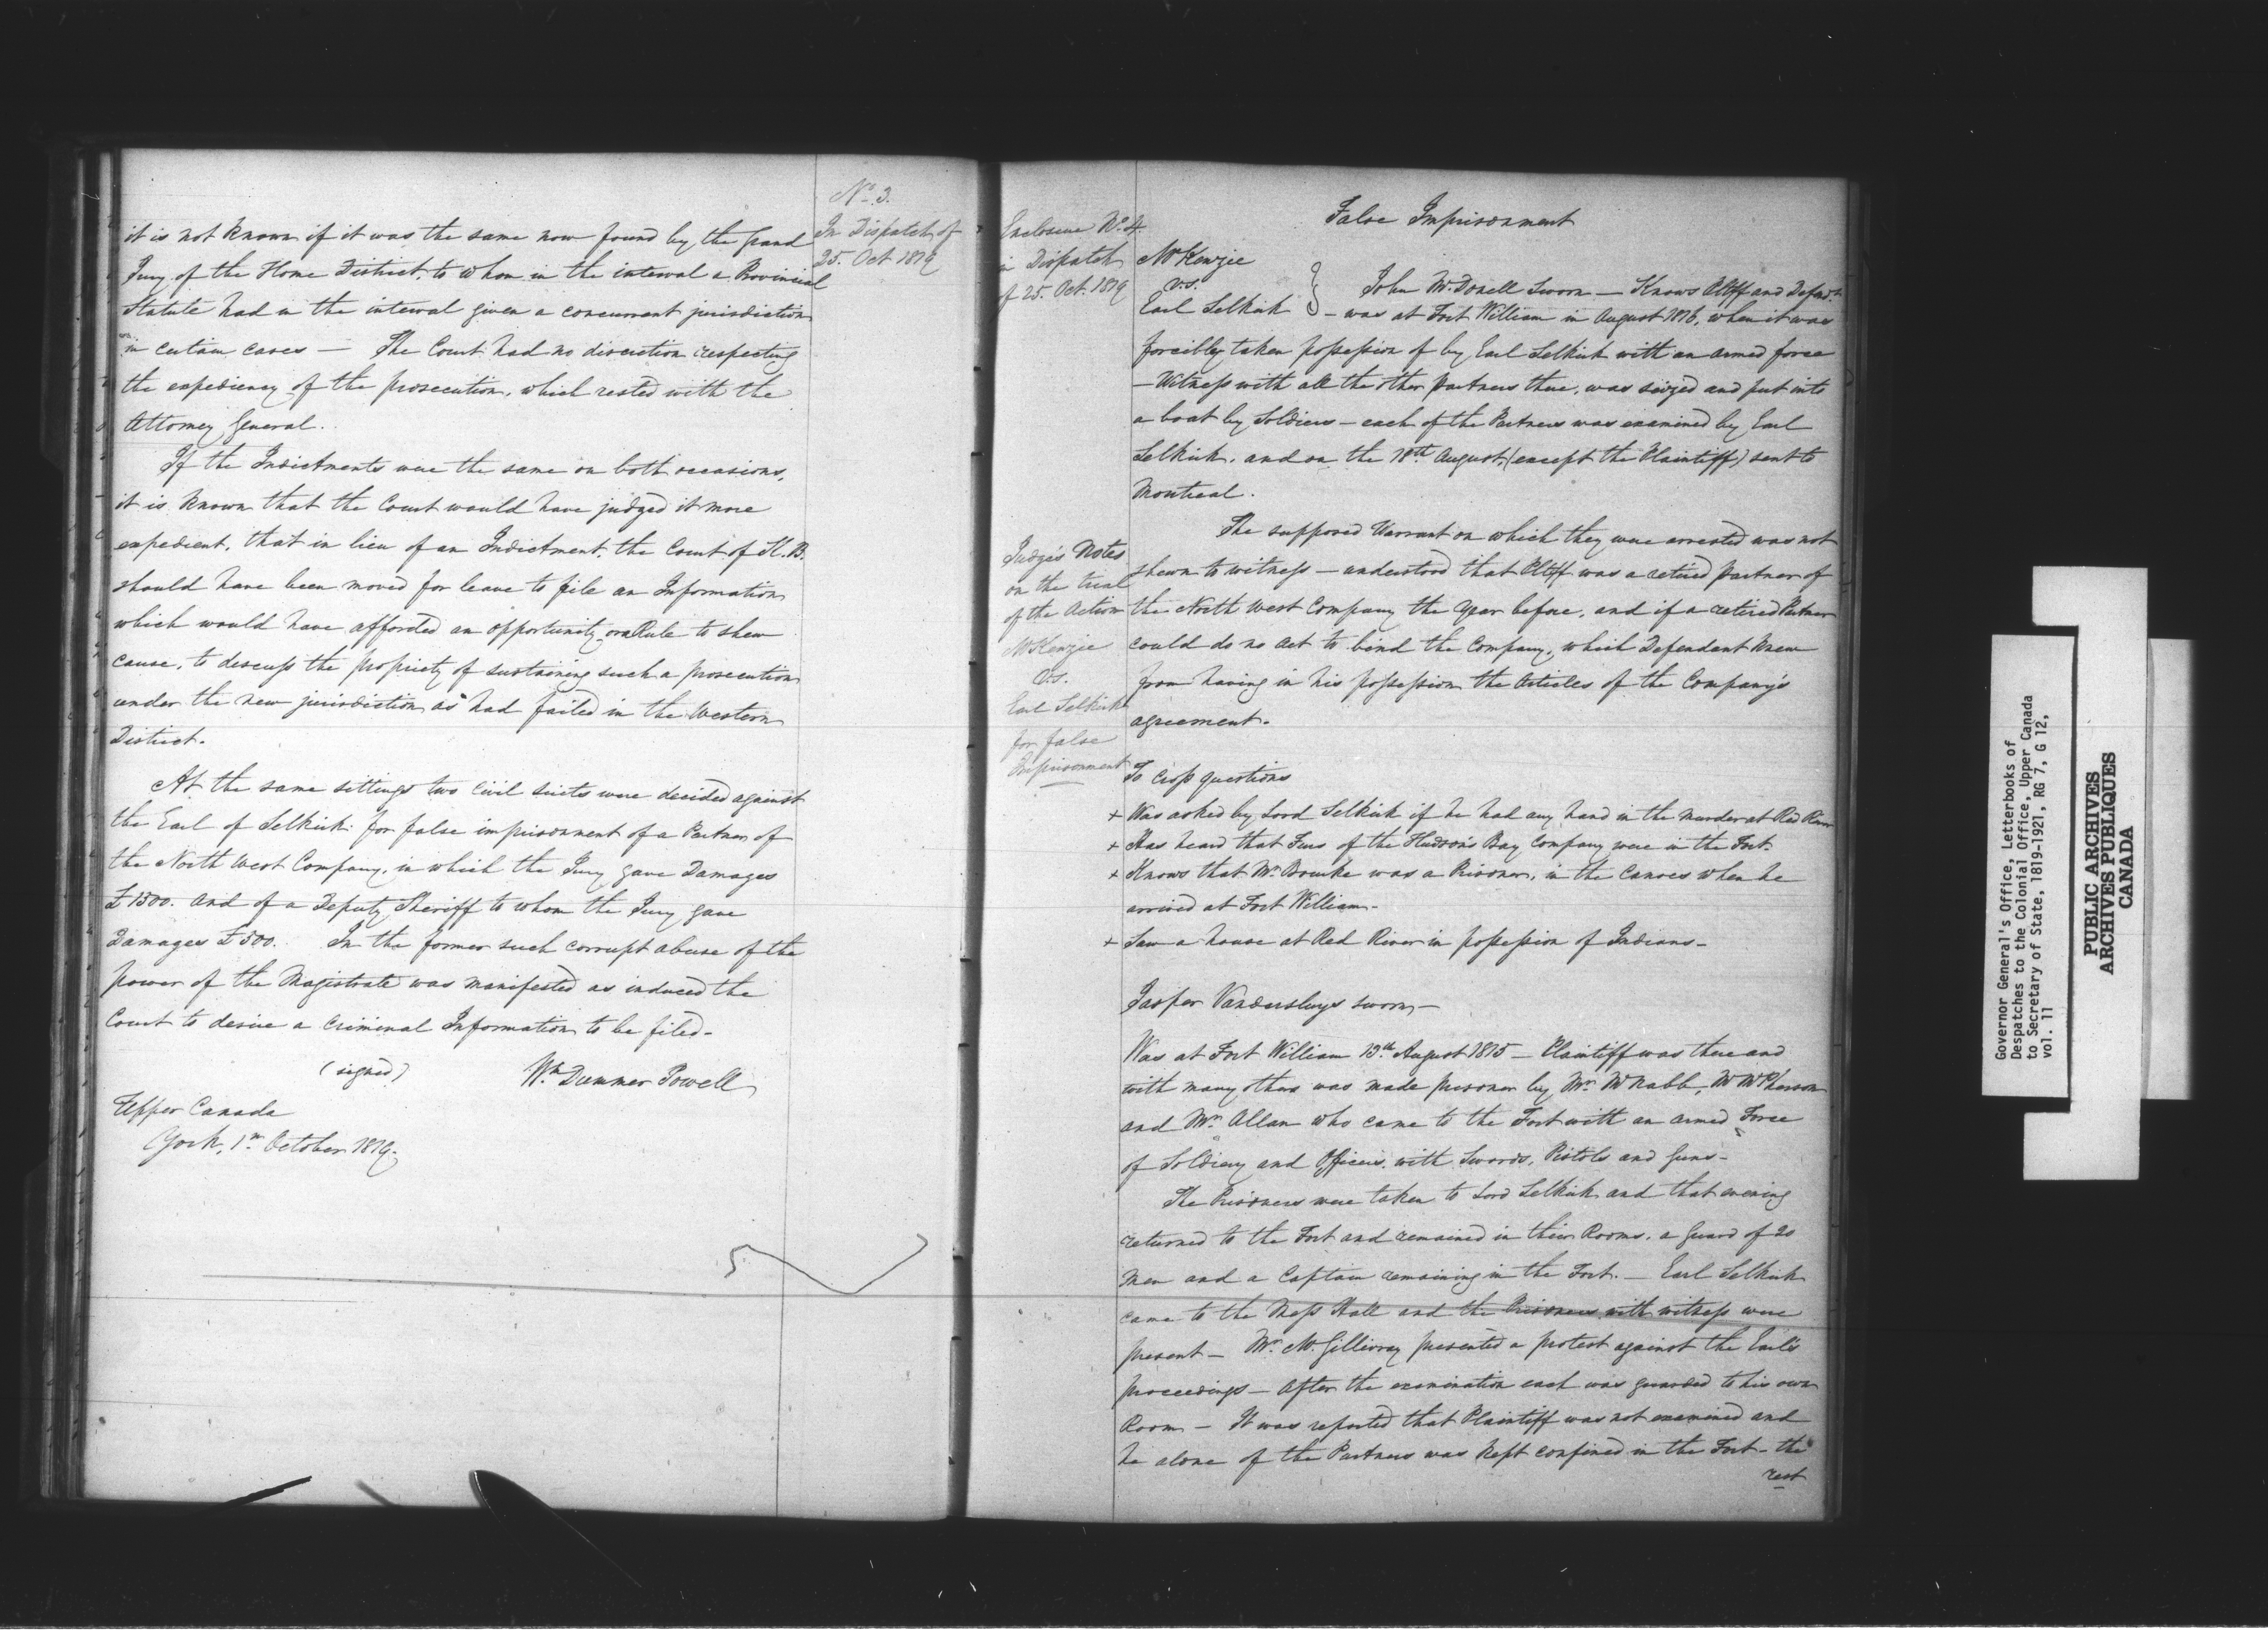 No. 3.
In Dispatch of
25. Oct 1819
it is not known if it was the same now found by the Grand
Jury of the Home District, to whom in the interval a Provincial
Statute had in the interval given a concurrent jurisdiction
in certain cases — The Court had no discretion respecting
the expediency of the prosecution, which rested with the
Attorney General.
If the Indictments were the same on both occasions,
it is known that the Court would have judged it more
expedient, that in lieu of an Indictment, the Court of K. B.
should have been moved for leave to file an Information
which would have afforded an opportunity on a Rule to shew
cause, to discuss the propriety of sustaining such a prosecution
under the new jurisdiction as had failed in the Western
District.
At the same sittings two Civil suits were decided against
the Earl of Selkirk for false imprisonment of a Partner of
the North West Company, in which the Jury gave Damages
£1500. and of a Deputy Sheriff to whom the Jury gave
Damages £500. In the former such corrupt abuse of the
power of the Magistrate was manifested as induced the
Court to desire a Criminal Information to be filed—
(signed) Wm Dummer Powell
Upper Canada
York, 1st October 1819.
Enclosure No. 4.
in Dispatch
of 25. Oct. 1819
Judge's Notes
on the trial
of the Action
McKenzie
v.s.
Earl Selkirk
for false
Imprisonment
False Imprisonment
McKenzie
v.s.
Earl Selkirk } John McDonell Sworn — Knows Pltff and Defend.t
— was at Fort William in August 1816, when it was
forcibly taken possession of by Earl Selkirk with an armed force
— Witness with all the other Partners there, was seized and put into
a boat by Soldiers — each of the Partners was examined by Earl
Selkirk, and on the 18th August, (except the Plaintiff) sent to
Montreal.
The supposed Warrant on which they were arrested was not
shewn to witness — understood that Pltff was a retired partner of
the North West Company the Year before, and if a retired Partner
could do no act to bind the Company, which Defendant knew
from having in his possession the Articles of the Company's
agreement.
To Cross questions
+ Was asked by Lord Selkirk if he had any hand in the murder at Red River
+ Has heard that Furs of the Hudson's Bay Company were in the Fort.
+ Knows that Mr. Bourke was a Prisoner, in the Canoes when he
arrived at Fort William—
+ Saw a house at Red River in possession of Indians—
Jasper Vandersluys sworn—
Was at Fort William 13th August 1815 — Plaintiff was there and
with many others was made prisoner by Mr. McNabb, Mr McPherson
and Mr. Allan who came to the Fort with an armed Force
of Soldiery and Officers, with Swords, Pistols and Guns—
The Prisoners were taken to Lord Selkirk and that evening
returned to the Fort and remained in their Rooms, a Guard of 20
Men and a Captain remaining in the Fort. — Earl Selkirk
came to the Mess Hall and the Prisoners with witness were
present — Mr. McGillivray presented a protest against the Earl's
proceedings — After the examination each was guarded to his own
Room — It was reported that Plaintiff was not examined and
he alone of the Partners was kept confined in the Fort — the
rest
Governor General's Office, Letterbooks of
Despatches to the Colonial Office, Upper Canada
to Secretary of State, 1819-1921, RG 7, G 12,
vol. 11
PUBLIC ARCHIVES
ARCHIVES PUBLIQUES
CANADA